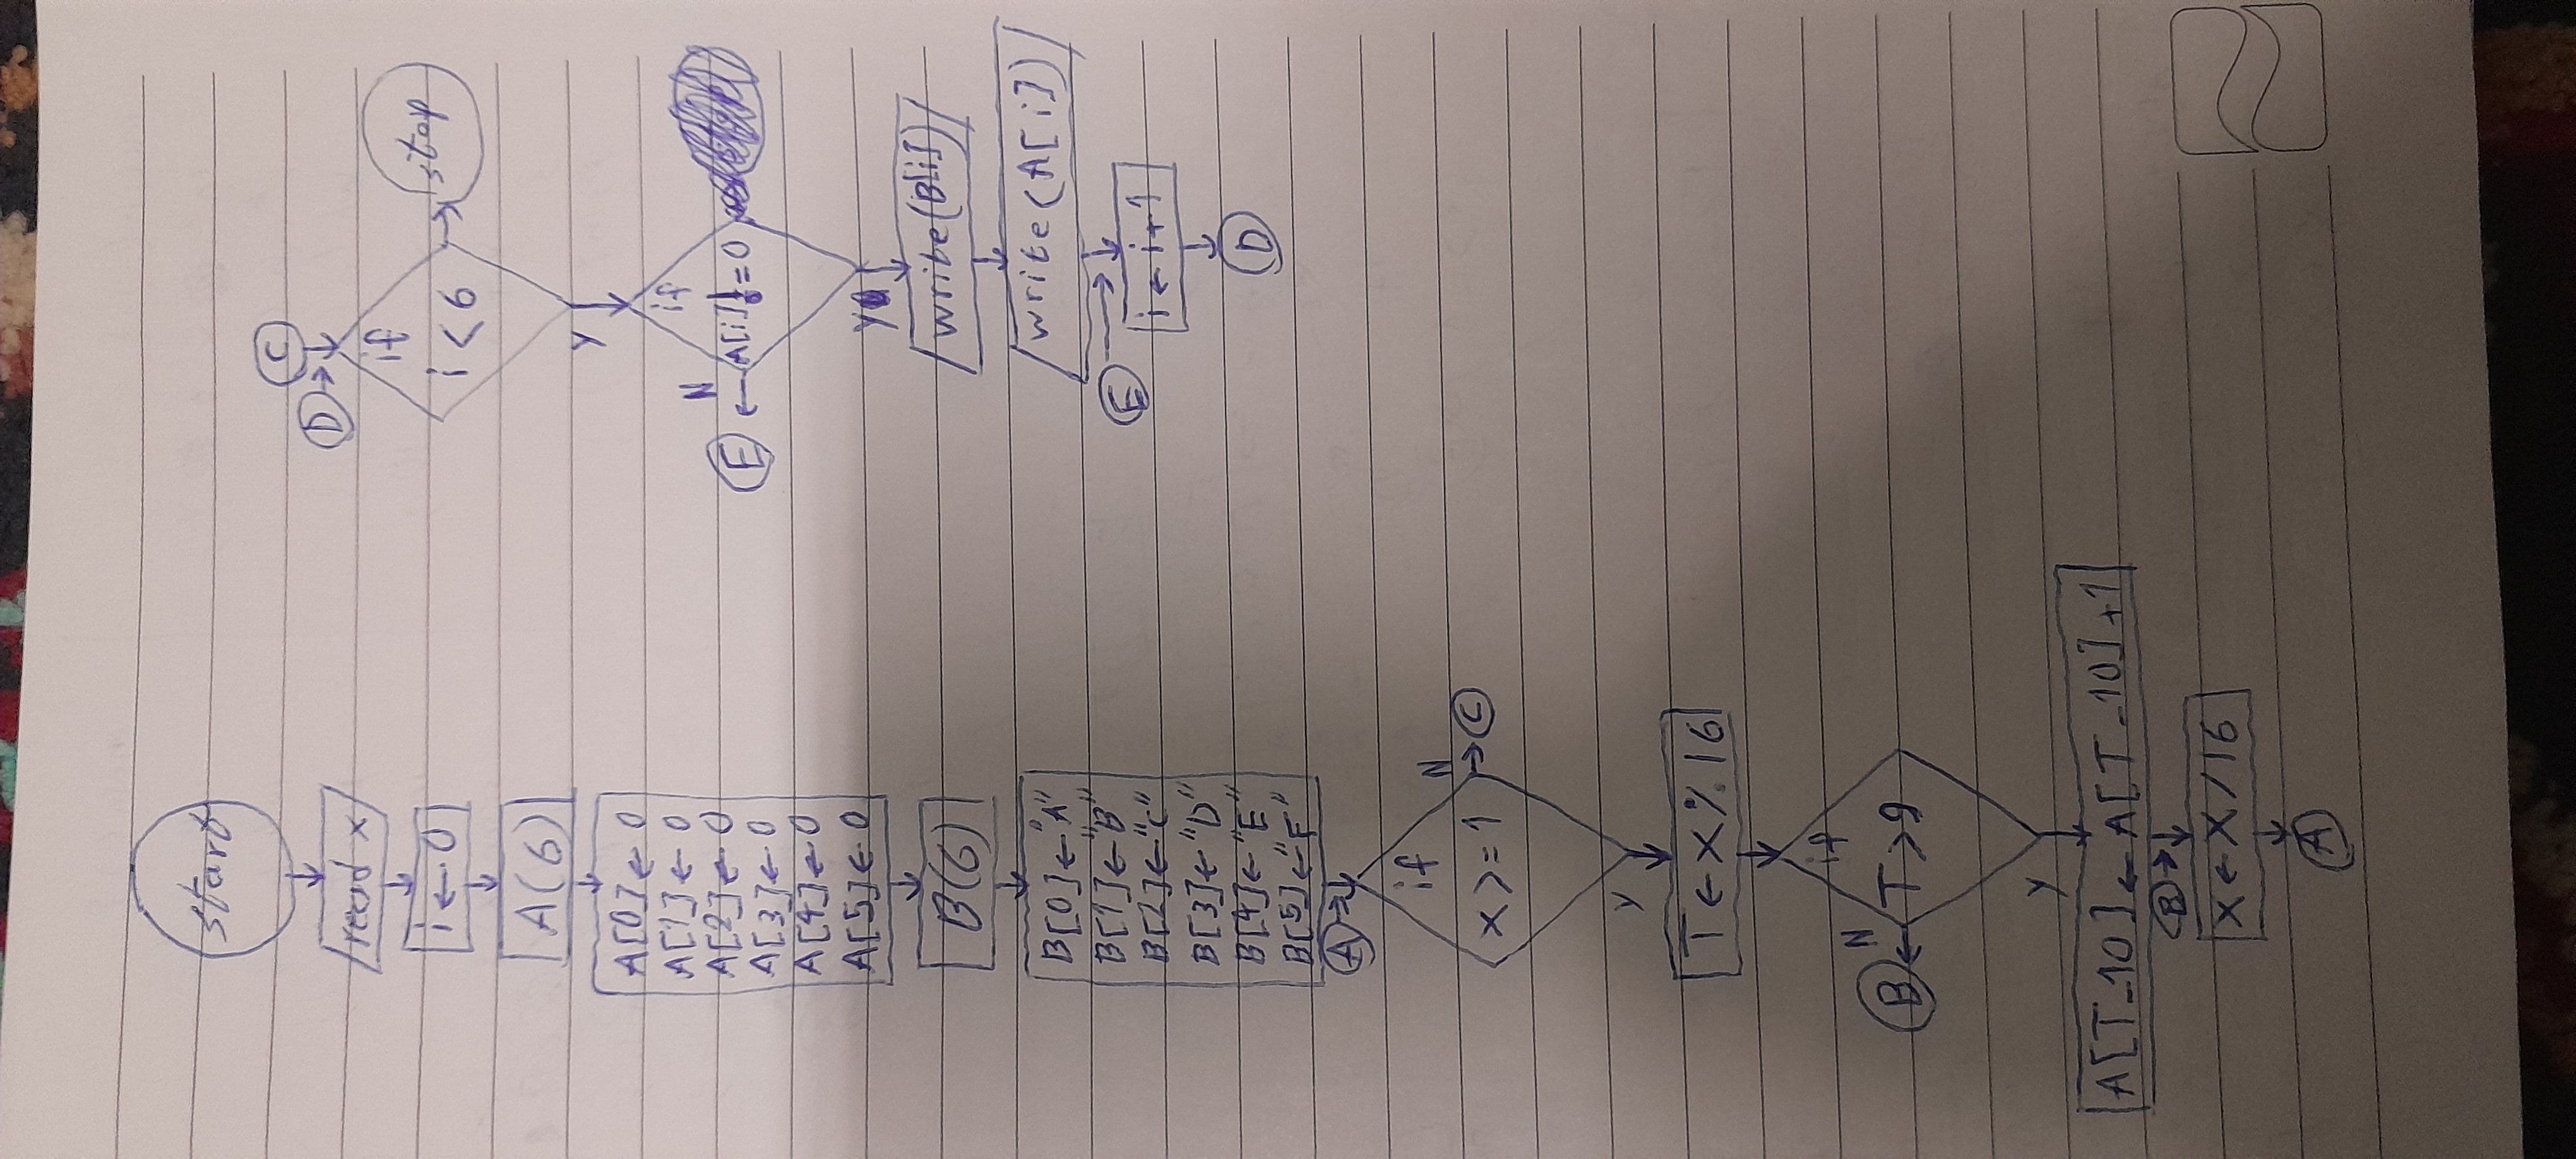 start
read x
i ← 0
A(6)
A[0] ← 0
A[1] ← 0
A[2] ← 0
A[3] ← 0
A[4] ← 0
A[5] ← 0
B(6)
B[0] ← "A"
B[1] ← "B"
B[2] ← "C"
B[3] ← "D"
B[4] ← "E"
B[5] ← "F"
A
if
x >= 1
N
C
Y
T ← X % 16
if
T > 9
N
B
Y
A[T-10] ← A[T-10]+1
B
X ← X / 16
A
C
D
if
i < 6
stop
Y
if
A[i] != 0
N
E
Y
write(B[i])
write(A[i])
E
i ← i+1
D